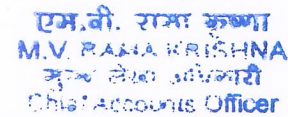 एम.वी. रामा कृष्णा
M.V. RAMA KRISHNA
मुख्य लेखा अधिकारी
Chief Accounts Officer